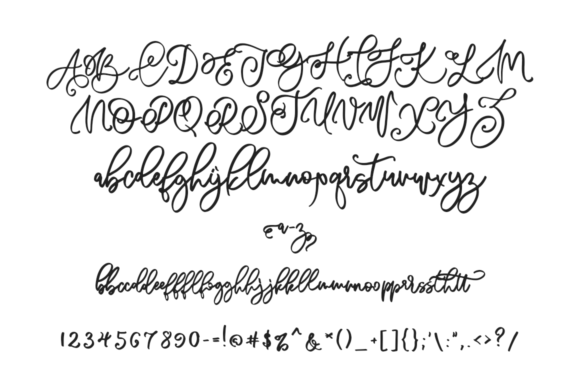 ABCDEFGHIJKLM
NOPQRSTUVWXYZ
abcdefghijklmnopqrstuvwxyz
a-z
bbccddeeffffflfsgghhjjkkllmmnnoopprrssthtt
1234567890-=!@#$%^&*()_+[]{};'\:",.<>?/